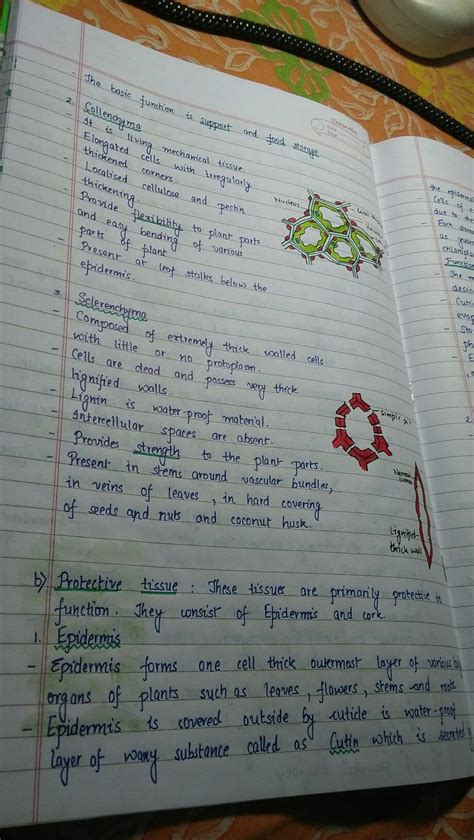 - The basic function is support and food storage
2. Collenchyma
- It is living mechanical tissue.
- Elongated cells with irregularly
thickened corners.
- Localised cellulose and pectin
thickening.
- Provide flexibility to plant parts
and easy bending of various
parts of plant
- Present at leaf stalks below the
epidermis.
Nucleus
3. Sclerenchyma
- Composed of extremely thick walled cells
with little or no protoplasm.
- Cells are dead and possess very thick
lignified walls.
- Lignin is water-proof material.
- Intercellular spaces are absent.
- Provides strength to the plant parts.
- Present in stems around vascular bundles,
in veins of leaves, in hard covering
of seeds and nuts and coconut husk.
simple pit
Narrow
lumen
Lignified
thick wall
b) Protective tissue : These tissues are primarily protective in
function. They consist of Epidermis and cork.
1. Epidermis
- Epidermis forms one cell thick outermost layer of various
organs of plants such as leaves, flowers, stems and roots
- Epidermis is covered outside by cuticle is water-proof
layer of waxy substance called as Cutin which is secreted
the epidermal
Cells of
due to
Each
as
chloroplas
Function
- The
- Cuti